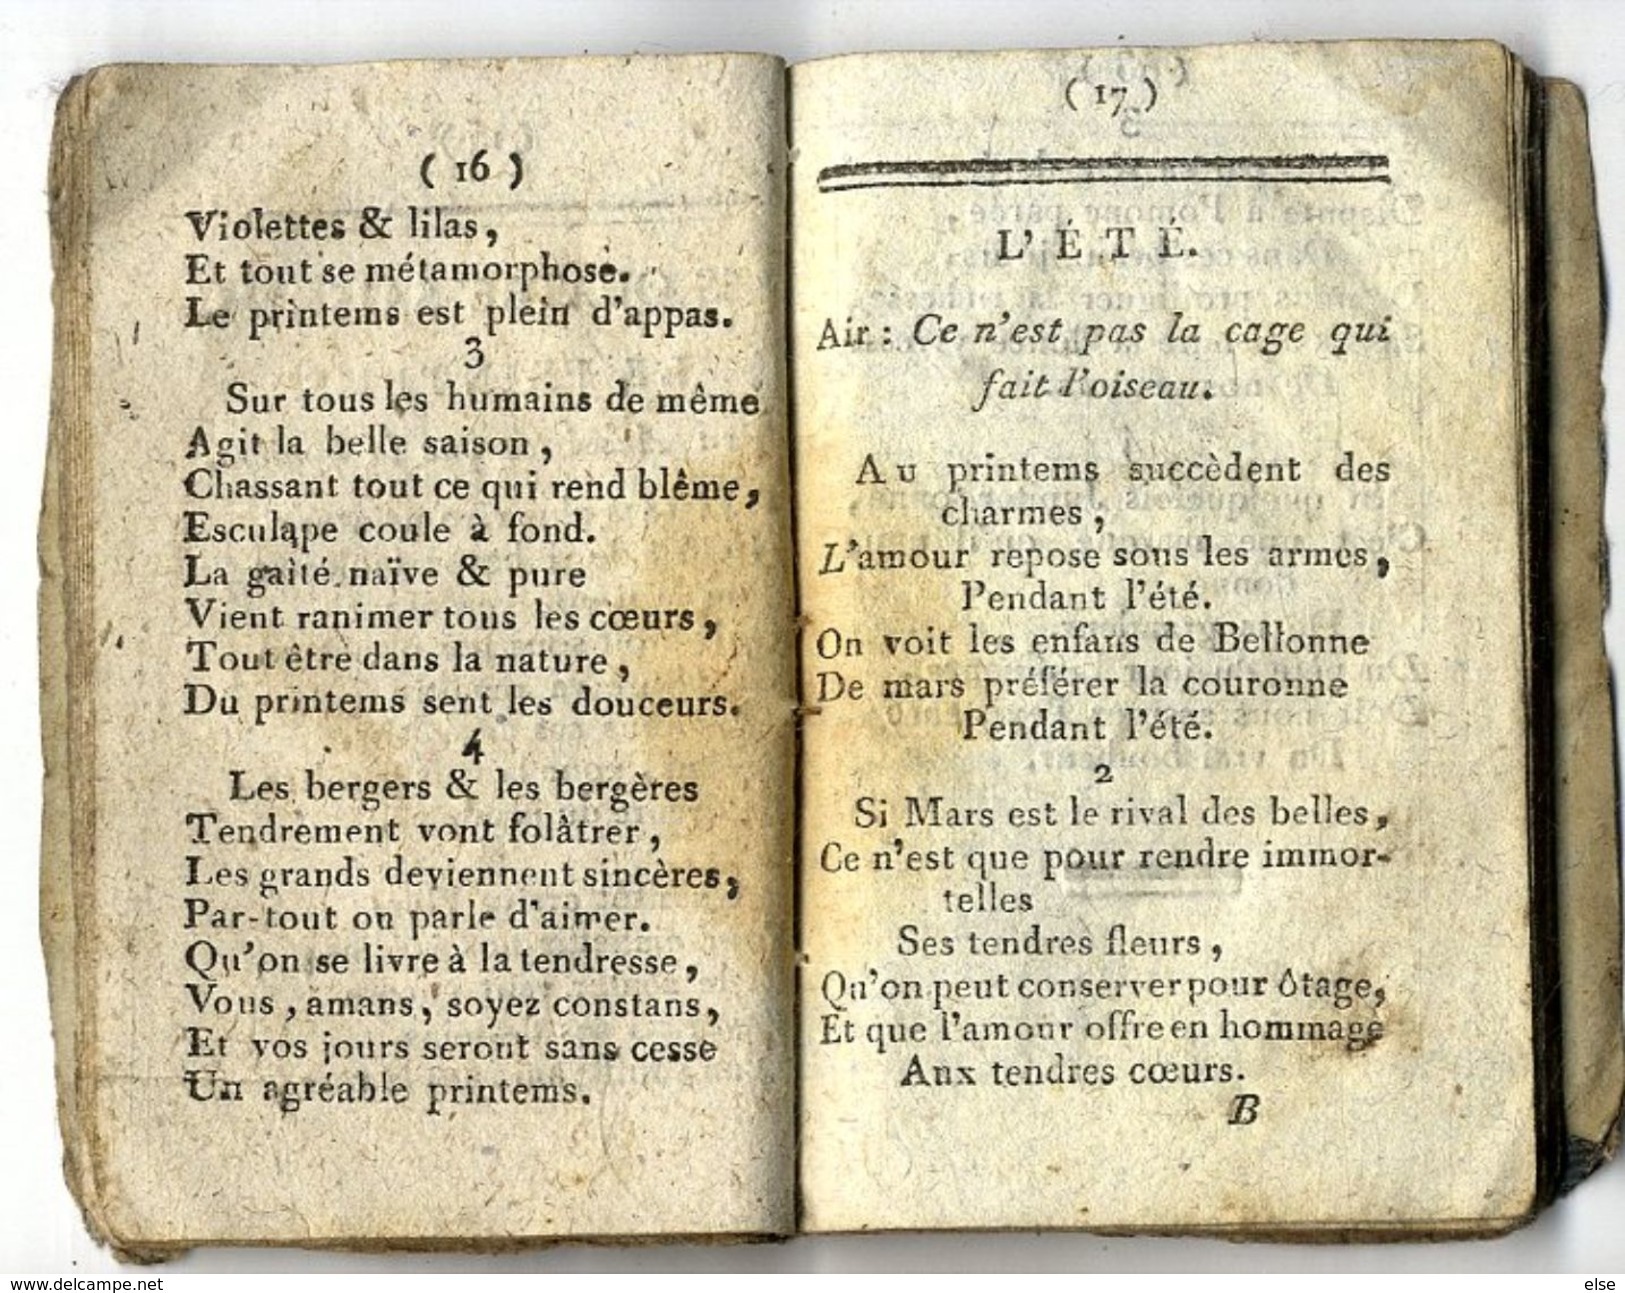 ( 16 )
Violettes & lilas ,
Et tout se métamorphose.
Le printems est plein d'appas.
3
Sur tous les humains de même
Agit la belle saison ,
Chassant tout ce qui rend blême ,
Esculape coule à fond.
La gaîté naïve & pure
Vient ranimer tous les cœurs ,
Tout être dans la nature ,
Du printems sent les douceurs.
4
Les bergers & les bergères
Tendrement vont folâtrer ,
Les grands deviennent sincères ,
Par-tout on parle d'aimer.
Qu'on se livre à la tendresse ,
Vous , amans , soyez constans ,
Et vos jours seront sans cesse
Un agréable printems.
( 17 )
L'ÉTÉ.
Air : Ce n'est pas la cage qui
fait l'oiseau.
Au printems succèdent des
charmes ,
L'amour repose sous les armes ,
Pendant l'été.
On voit les enfans de Bellonne
De mars préférer la couronne
Pendant l'été.
2
Si Mars est le rival des belles ,
Ce n'est que pour rendre immor-
telles
Ses tendres fleurs ,
Qu'on peut conserver pour ôtage ,
Et que l'amour offre en hommage
Aux tendres cœurs.
B
www.delcampe.net
else